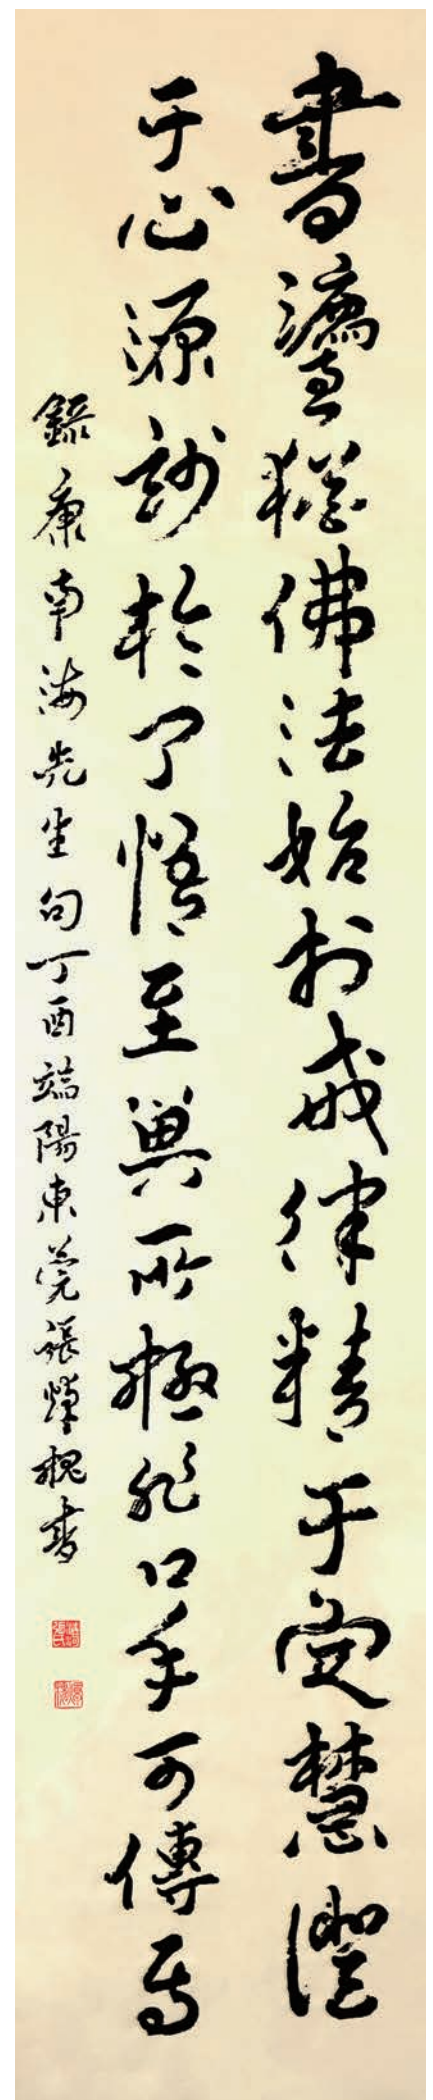 書灋猶佛法始於戒律精于定慧證
于心源妙於了悟至其所極非口手可傳焉
錄康南海先生句丁酉端陽東莞張槐書